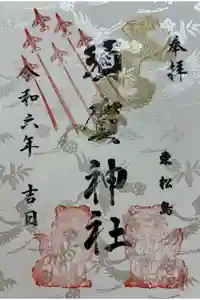 奉拝
東松島
神社
令和六年 吉日